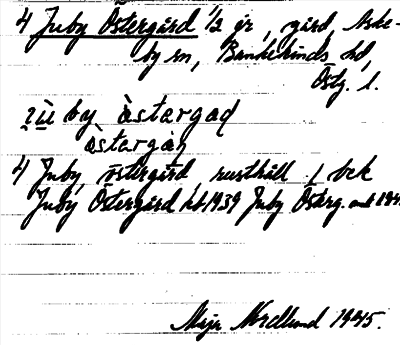 4 Juby Östergård 1/2 gr, gård, Aske-
by sn, Bankekinds hd,
Östg. l.
by östargaɖ
östargån
4 Juby, östergård rusthåll 1 bek
Juby Östergård hl 1939 Juby Österg.
Maja Nordlund 1945.